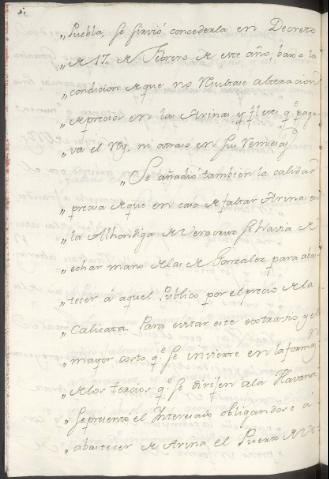 „Puebla, se sirvió concederla en Decreto
„de 17 de Febrero de este año, bajo la
„condicion de que no resultase alteracion
„de precios en la Arina y q.e
va el Rey, ni atraso en su remesa
„Se añadió tambien la calidad
„precisa de que en caso de faltar Arina en
„la Alhondiga de Veracruz se havia de
„echar mano de la de Gonzalez para abas
„tecer á aquel Publico por el precio de la
„Calicata. Para evitar este extravio y el
„mayor costo q.e se invierte en la forma
„de los tercios q.e se dirijen á la Havana
„Se presentó el Interesado obligandose á
„abastecer de Arina el Puerto de